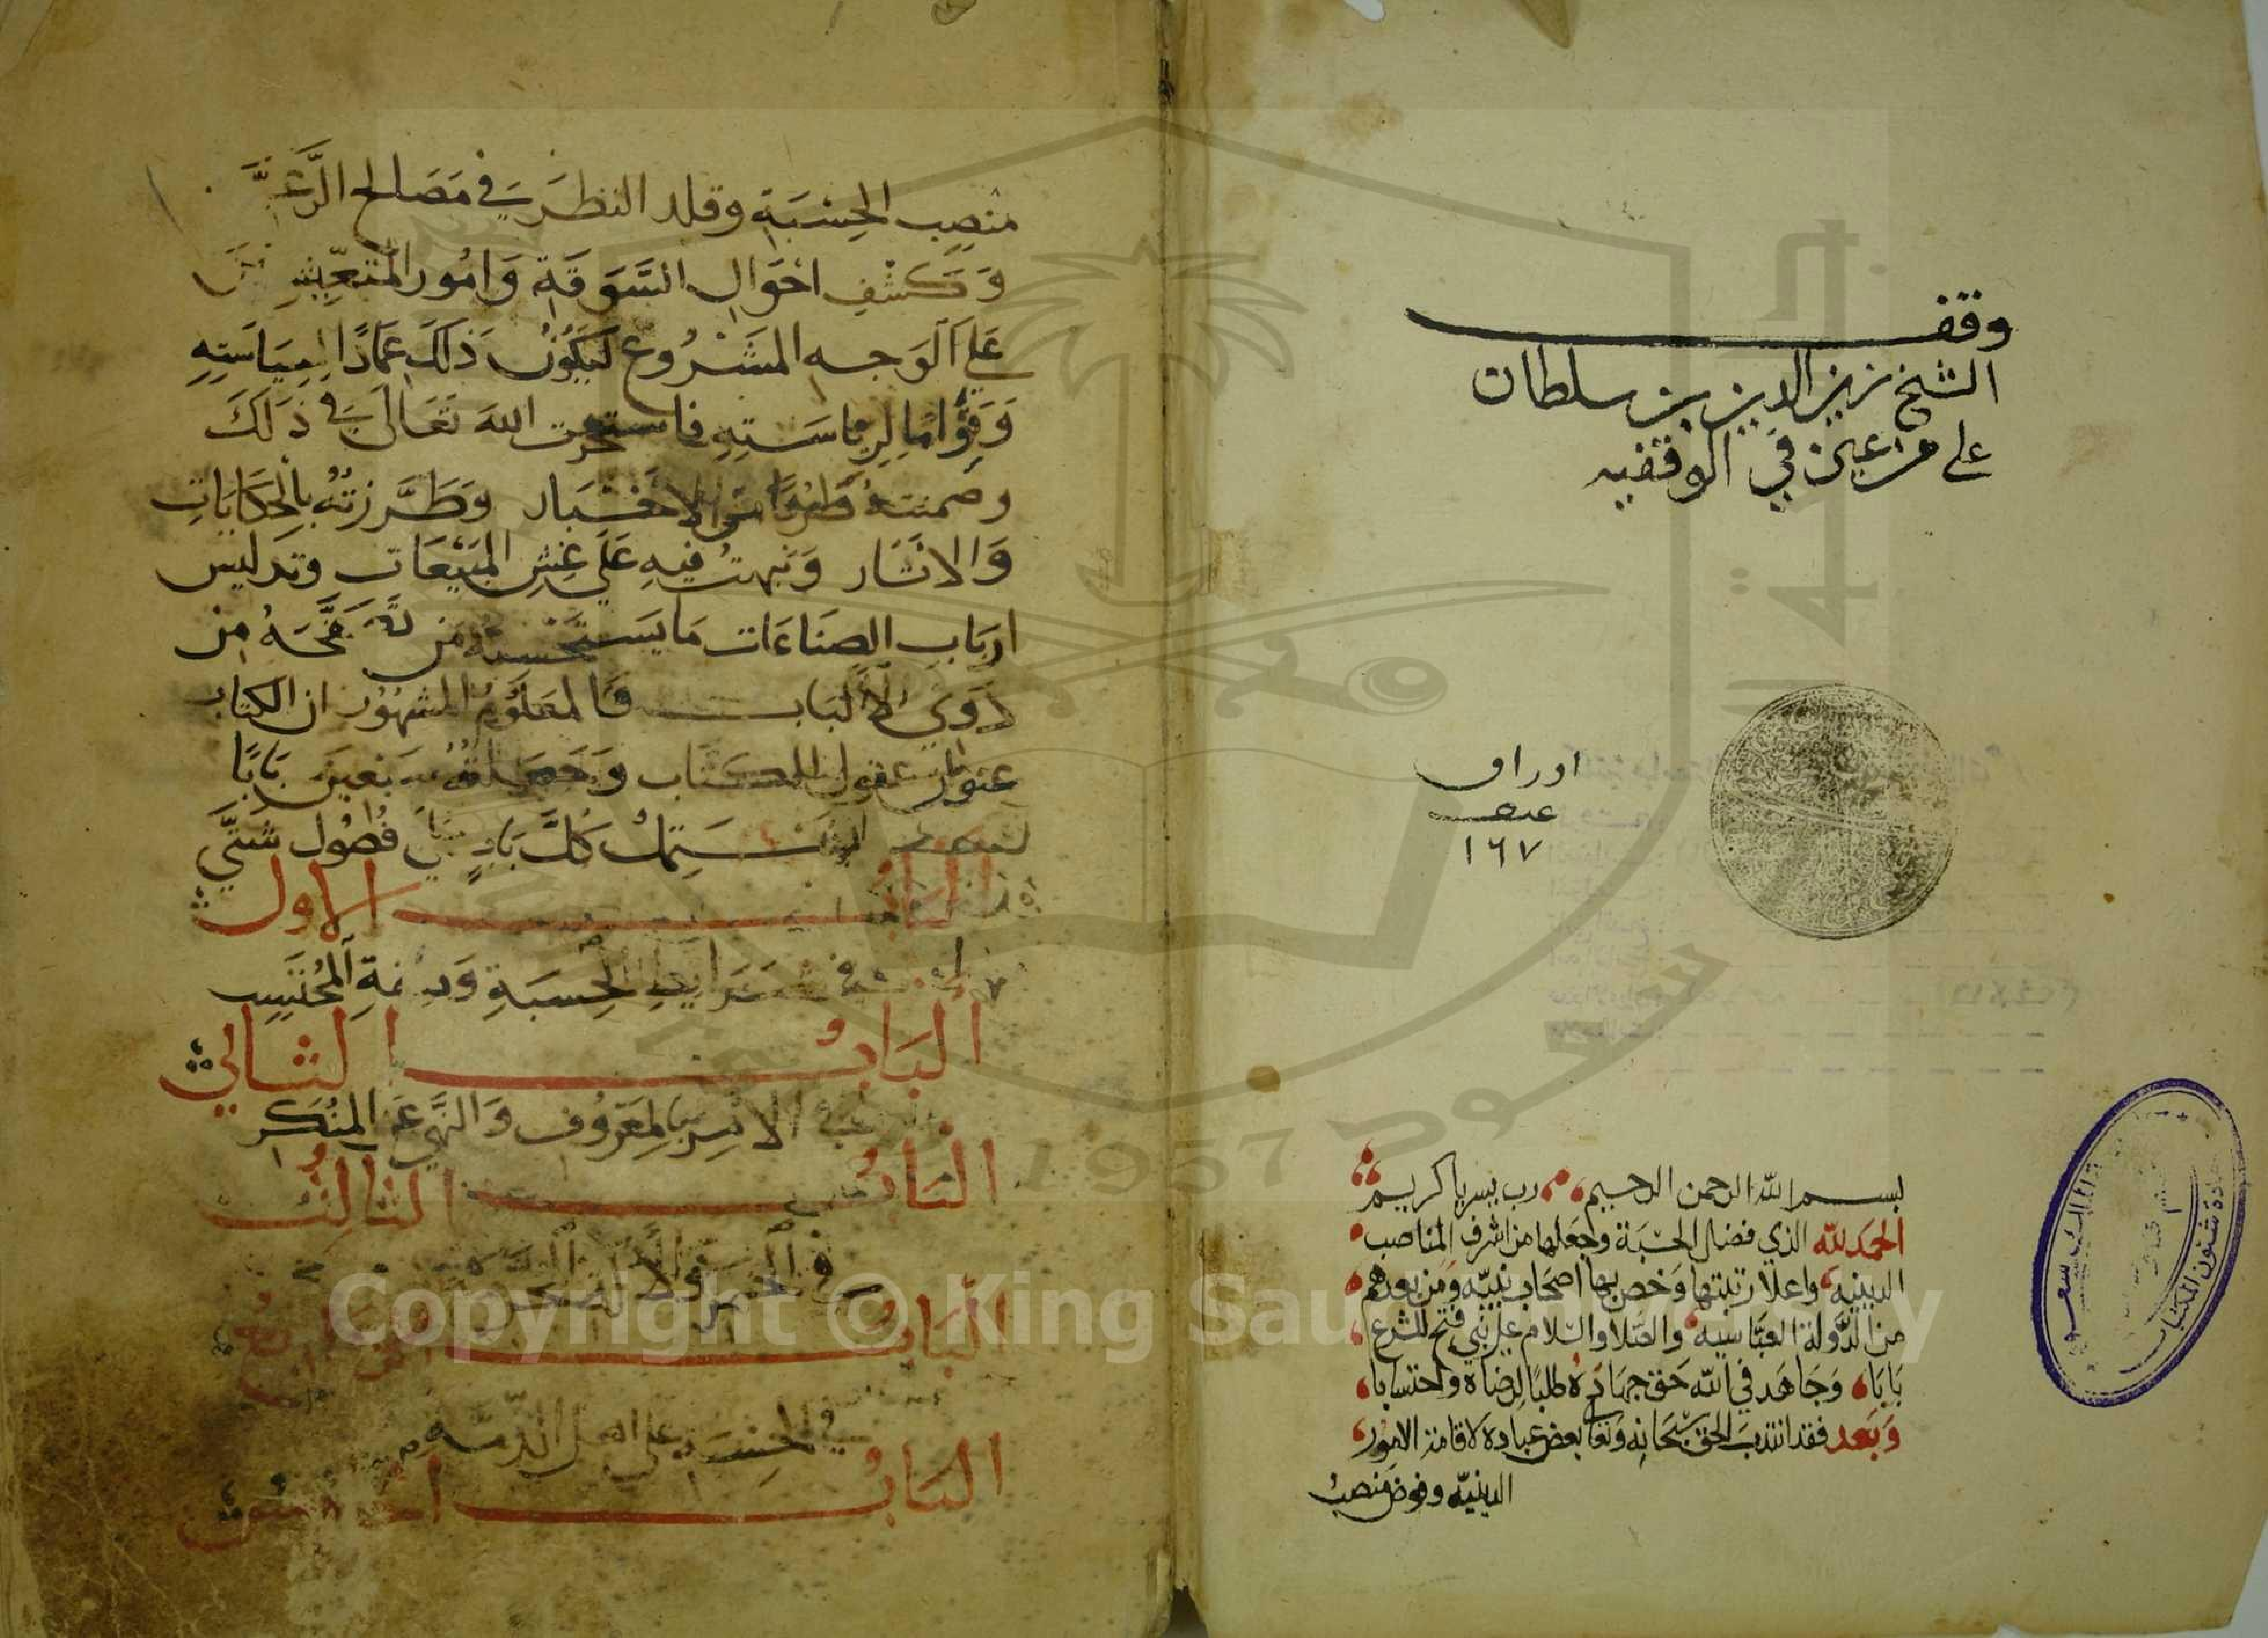 وقف
الشيخ زين الدين بن سلطان
على من عين في الوقفيه
اوراق
عدد
١٦٧
بسم الله الرحمن الرحيم رب يسر يا كريم
الحمد لله الذي فضل الحسبة وجعلها من اشرف المناصب
الدينيه واعلا رتبتها وخص بها اصحاب نبيه ومن بعدهم
من الدولة العباسيه والصلا والسلام على نبي فتح للشرع
بابا وجاهد في الله حق جهاده طلبا لرضاه واحتسابا
وبعد فقد انتدب الحق سبحانه وتعا بعض عباده لاقامة الامور
الدينيه وفوض منصب
منصب الحسبة وقلد النظر في مصالح الرعية
وكشف احوال السوقة وامور المتعيشين
على الوجه المشروع ليكون ذلك عمادا لسياسته
وقواما لرياسته فاستخرت الله تعالى في ذلك
وضمنته طرفا من الاخبار وطرزته بالحكايات
والاثار ونبهت فيه على غش المبيعات وتدليس
ارباب الصناعات ما يستحسنه من تصفحه من
ذوي الالباب فالمعلوم المشهور ان الكتاب
عنوان عقول الكتاب وجعلته سبعين بابا
يشتمل كل باب على فصول شتى
الباب الاول
في شرايط الحسبة وصفة المحتسب
الباب الثاني
في الامر بالمعروف والنهي عن المنكر
الباب الثالث
في الخمر والالة المحرمة
الباب الرابع
في الحسبة على اهل الذمة
الباب الخامس
Copyright © King Saud University
1957